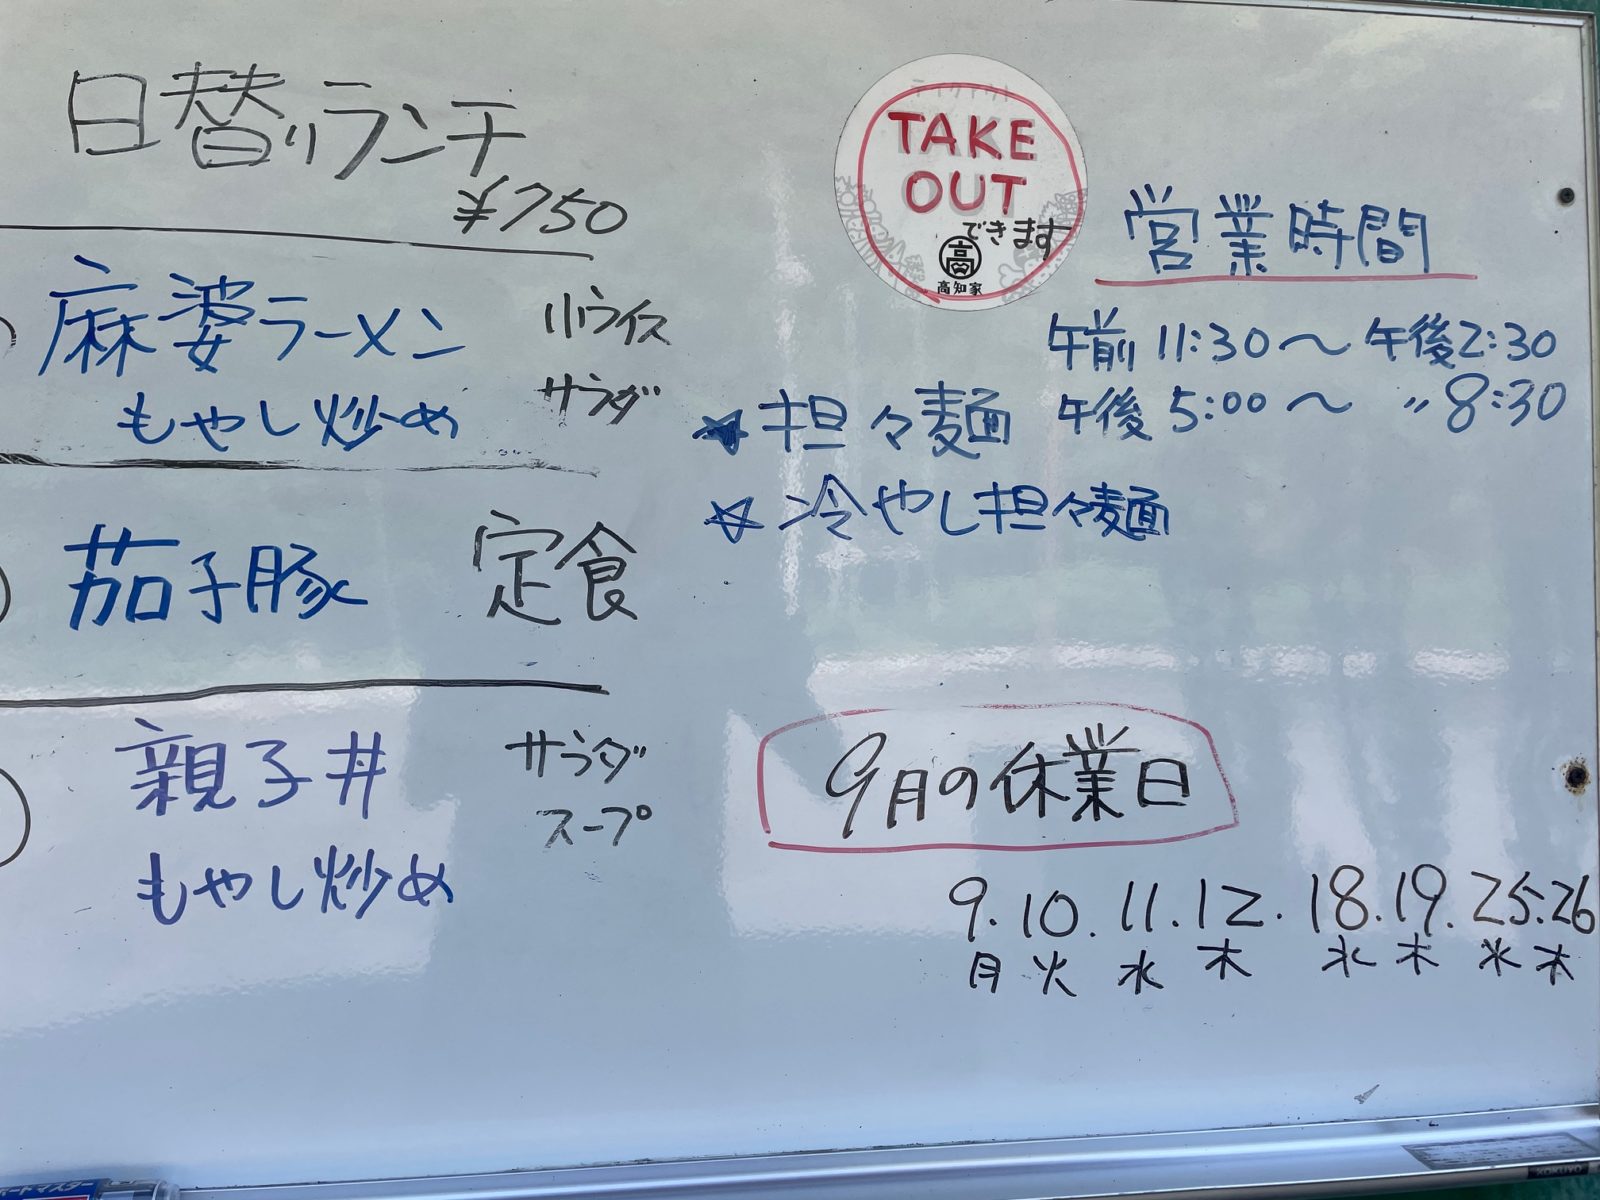 日替りランチ
¥750
麻婆ラーメン
小ライス
もやし炒め
サラダ
茄子豚 定食
親子丼
サラダ
スープ
もやし炒め
TAKE
OUT
できます
高
高知家
営業時間
午前 11:30〜午後2:30
午後 5:00〜 〃 8:30
★担々麺
☆冷やし担々麺
9月の休業日
9.10.11.12.18.19.25.26
月 火 水 木 水 木 水 木
KOKUYO